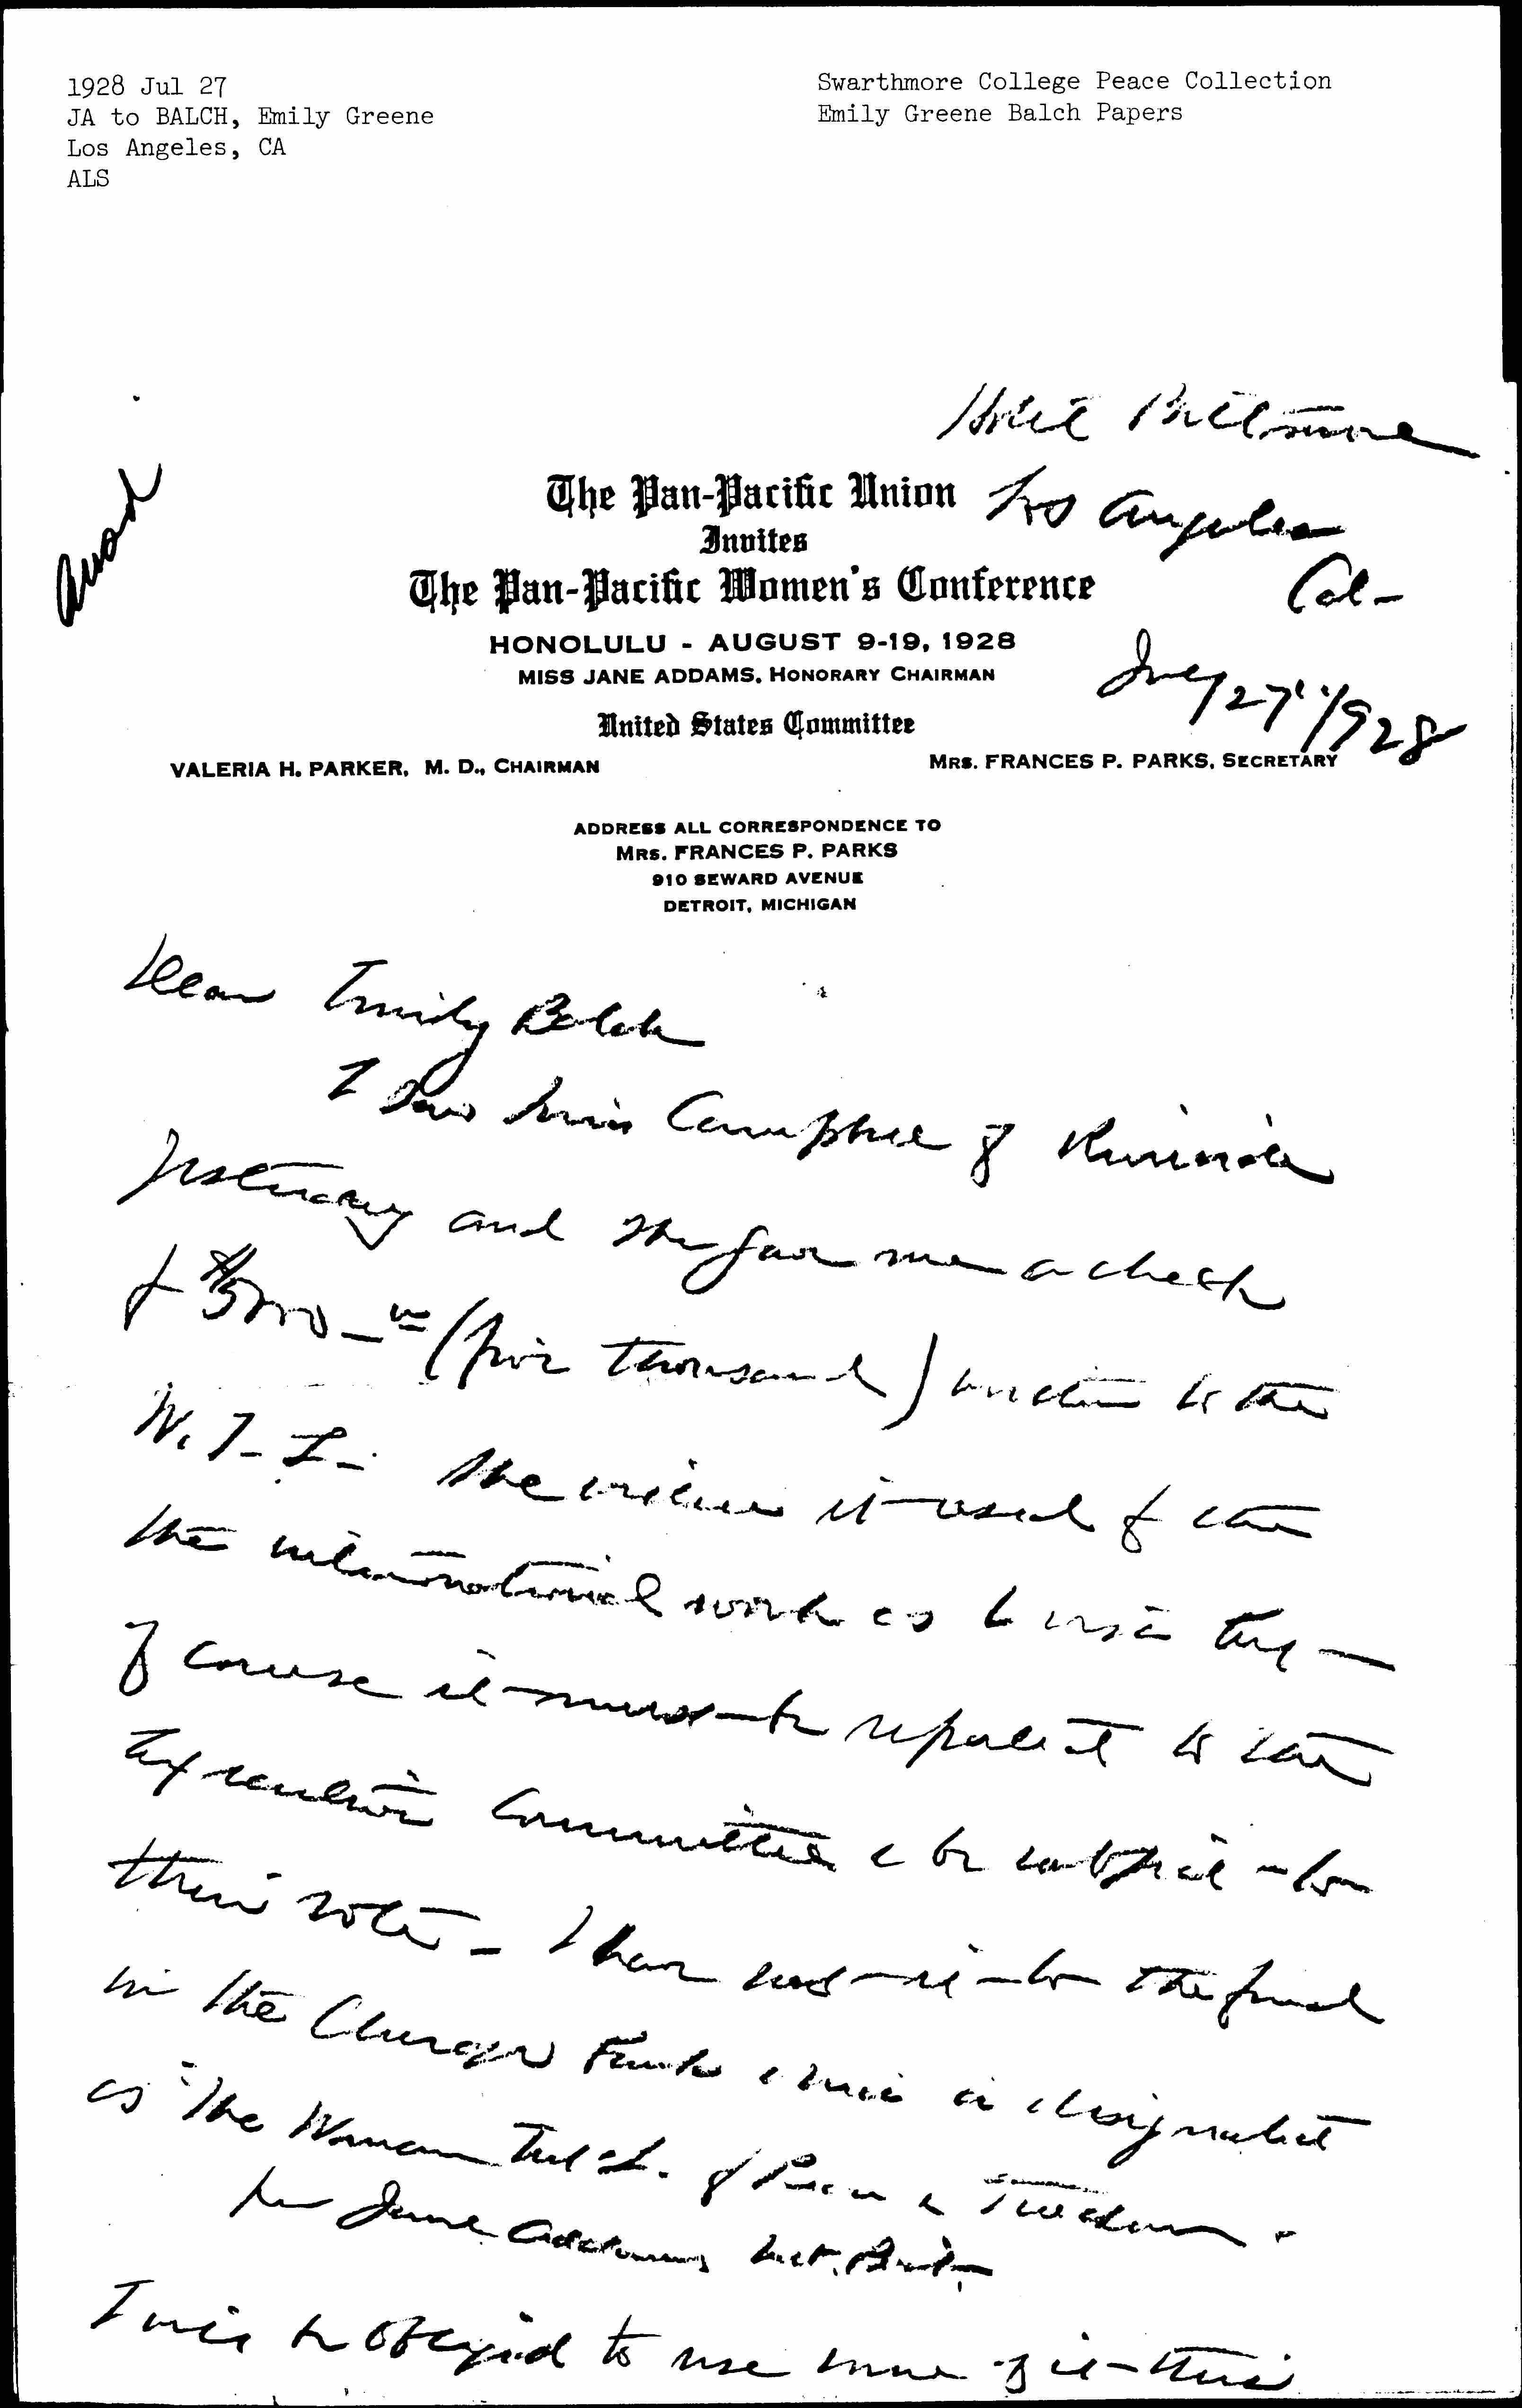 1928 Jul 27
JA to BALCH, Emily Greene
Los Angeles, CA
ALS
Swarthmore College Peace Collection
Emily Greene Balch Papers
Hotel Biltmore
Los Angeles
Cal-
July 27" 1928
The Pan-Pacific Union
Invites
The Pan-Pacific Women's Conference
HONOLULU - AUGUST 9-19, 1928
MISS JANE ADDAMS, HONORARY CHAIRMAN
United States Committee
VALERIA H. PARKER, M. D., CHAIRMAN
MRS. FRANCES P. PARKS, SECRETARY
ADDRESS ALL CORRESPONDENCE TO
MRS. FRANCES P. PARKS
910 SEWARD AVENUE
DETROIT, MICHIGAN
Dear Emily Balch
I saw Miss Campbell of Riverside
yesterday and she gave me a check
of $5000 - (five thousand) to the
W. I. L. She it used for the
the international work as
of course it must be reported to the
Executive Committee & be subject to
their vote - I have sent it to the fund
in the Chicago Bank & it is designated
as "The Woman Int L. of Peace & Freedom.
per Jane Addams Int. Pres-
I will be obliged to use some of it this